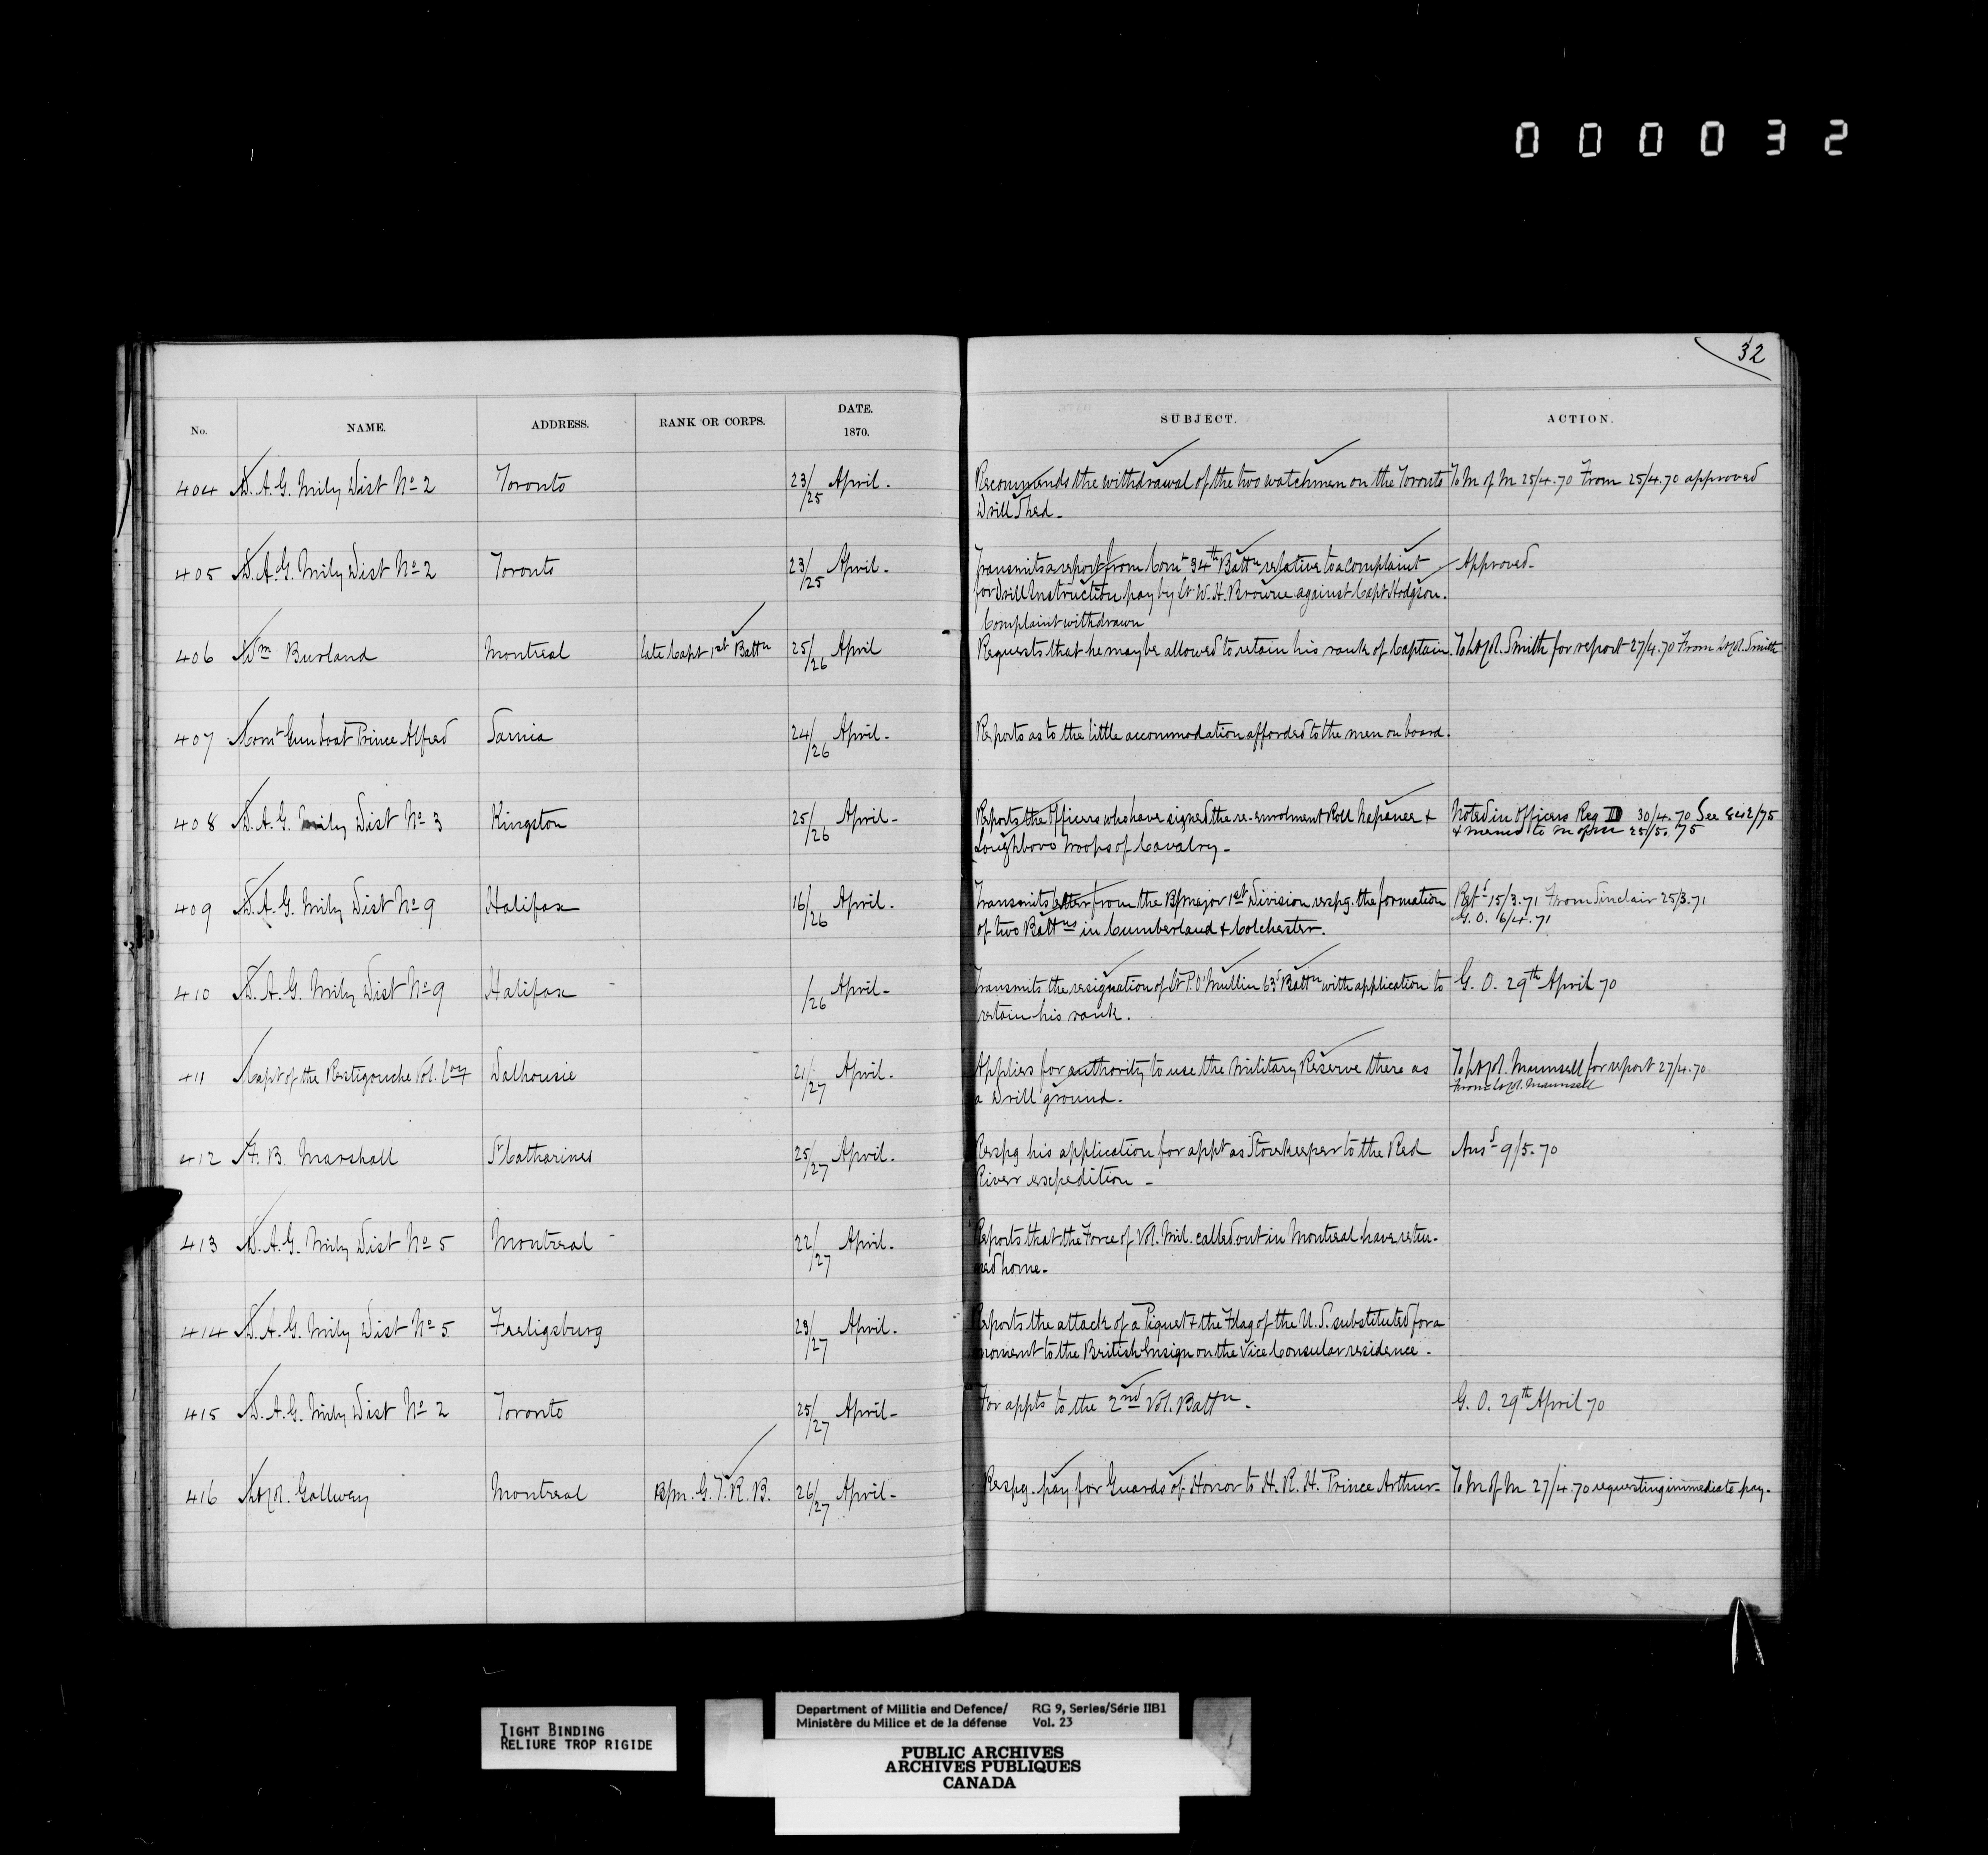 000032
32
No. NAME. ADDRESS. RANK OR CORPS. DATE. 1870. SUBJECT. ACTION.
404 D. A. G. Mily Dist No 2 Toronto 23/25 April. Recommends the withdrawal of the two watchmen on the Toronto To M of M 25/4.70 From 25/4.70 approved
Drill Shed.
405 D. A. G. Mily Dist No 2 Toronto 23/25 April. Transmits a report from Comt 34th Battn relative to a complaint Approved.
for Drill Instruction pay by Lt W. H. Browne against Capt Hodgson.
Complaint withdrawn
406 Wm Burland Montreal late Capt 1st Battn 25/26 April Requests that he may be allowed to retain his rank of Captain. To Lt Col. Smith for report 27/4.70 From Lt Col. Smith
407 Comt Gunboat Prince Alfred Sarnia 24/26 April. Reports as to the little accommodation afforded to the men on board.
408 D. A. G. Mily Dist No 3 Kingston 25/26 April. Reports the Officers who have signed the re-enrolment Roll Napanee & Noted in Officers Reg 30/4.70 See 8412/75
Loughboro Troops of Cavalry. & memo to M of M 25/5.75
409 D. A. G. Mily Dist No 9 Halifax 16/26 April. Transmits letter from the B/Major 1st Division respg. the formation Retd 15/3.71 From Sinclair 25/3.71
of two Battns in Cumberland & Colchester. G. O. 6/4.71
410 D. A. G. Mily Dist No 9 Halifax /26 April. Transmits the resignation of Lt P. O'Mullin 63d Battn with application to G. O. 29th April 70
retain his rank.
411 Capt of the Restigouche Vol. Coy Dalhousie 21/27 April. Applies for authority to use the Military Reserve there as To Lt Col. Maunsell for report 27/4.70
a Drill ground. From Lt Col. Maunsell
412 F. B. Marshall St Catharines 25/27 April. Respg his application for appt as Storekeeper to the Red Ansd 9/5.70
River expedition -
413 D. A. G. Mily Dist No 5 Montreal 22/27 April. Reports that the Force of Vol. Mil. called out in Montreal have retur-
ned home.
414 D. A. G. Mily Dist No 5 Freligsburg 23/27 April. Reports the attack of a Piquet & the Flag of the U. S. substituted for a
moment to the British Ensign on the Vice Consular residence.
415 D. A. G. Mily Dist No 2 Toronto 25/27 April. For appts to the 2nd Vol. Battn. G. O. 29th April 70
416 Lt Col. Gallwey Montreal B/m. G. T. R. B. 26/27 April. Respg. pay for Guards of Honor to H. R. H. Prince Arthur. To M of M 27/4.70 requesting immediate pay.
TIGHT BINDING
RELIURE TROP RIGIDE
Department of Militia and Defence/ RG 9, Series/Série IIB1
Ministère du Milice et de la défense Vol. 23
PUBLIC ARCHIVES
ARCHIVES PUBLIQUES
CANADA